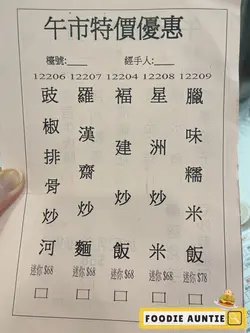 午市特價優惠
檯號:____ 經手人:____
12206 12207 12204 12208 12209
豉椒排骨炒河
羅漢齋炒麵
福建炒飯
星洲炒米
臘味糯米飯
迷你 $68 迷你 $68 迷你 $68 迷你 $68 迷你 $78
FOODIE AUNTIE